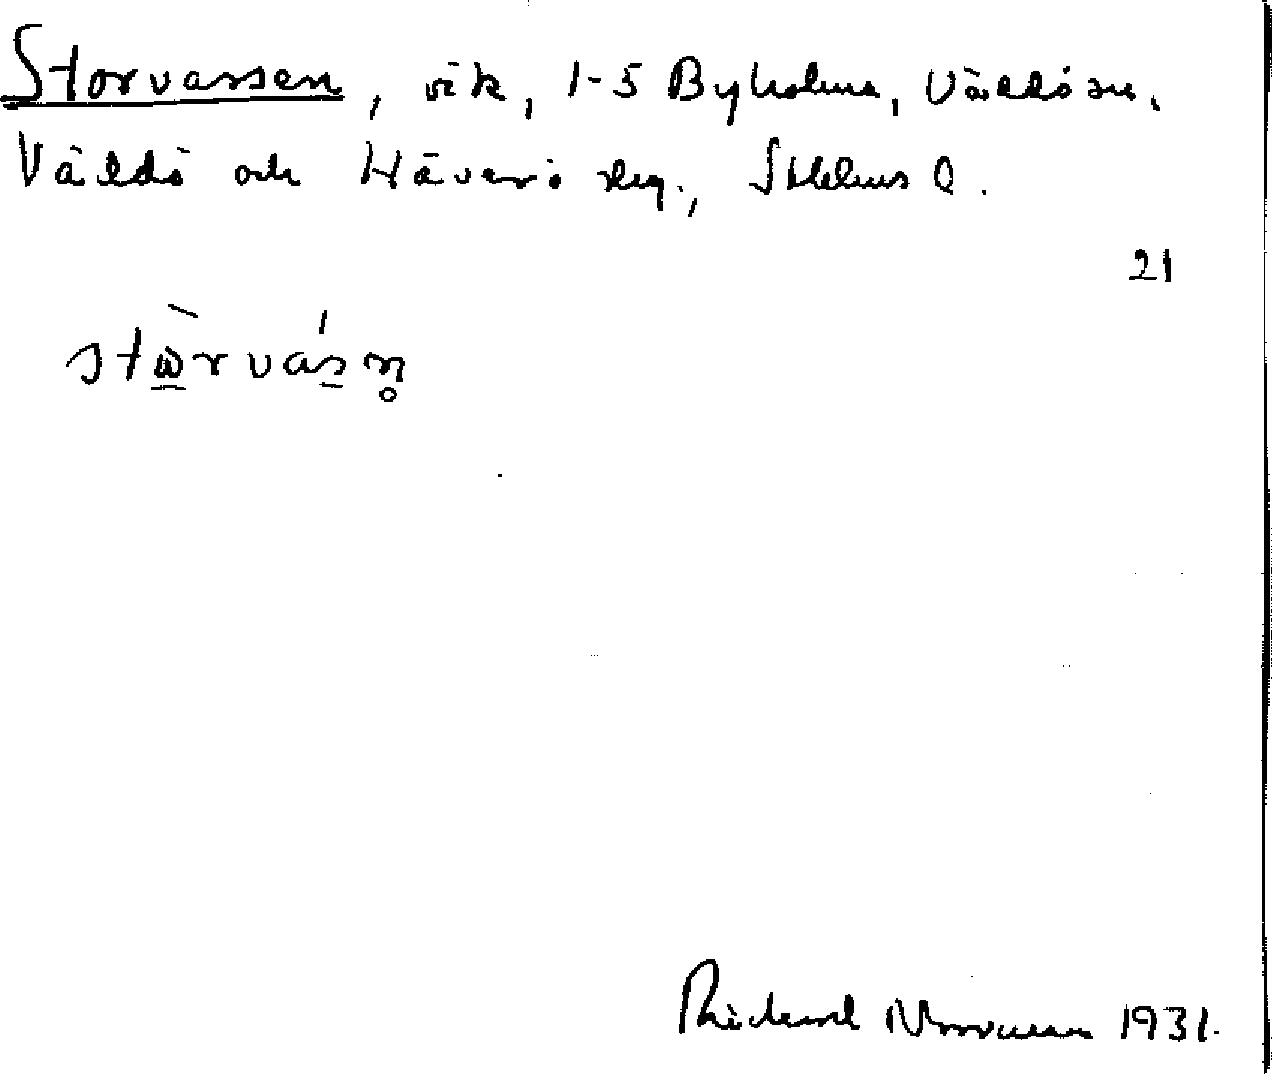 Storvassen, vik, 1-5 Byholma, Väddö sn.
Väddö och Häverö skg., Sthlms l.
21
stɷ̀rvásn̥
Rickard Norrman 1931.